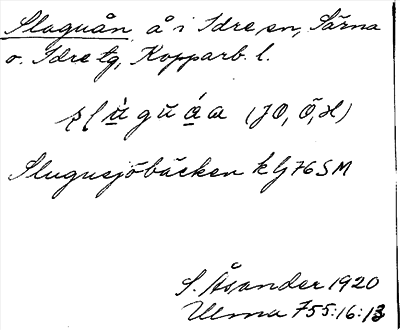 Sluguån å i Idre sn, Särna
o. Idre tg, Kopparb. l.
(JO, Ö, H)
Slugusjöbäcken k G 76 SM
S. Åsander 1920
Ulma 755:16:13